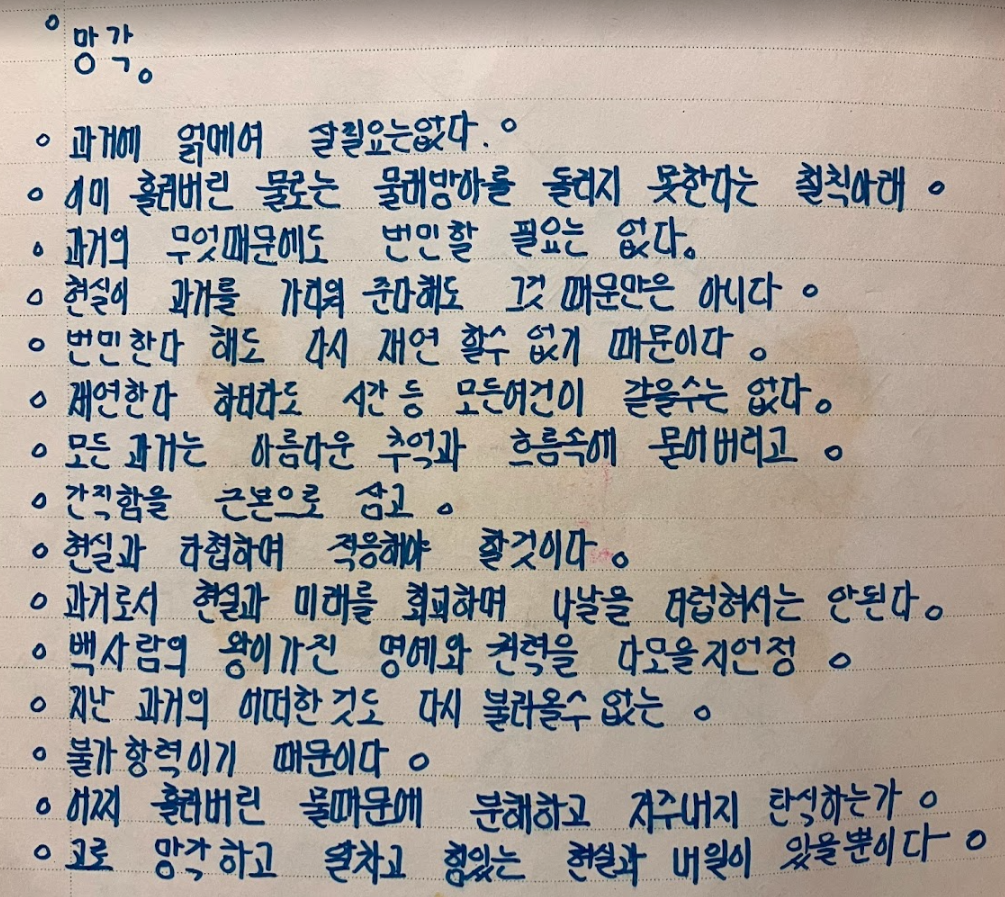 망각。
과거에 얽메여 살필요는없다.
이미 흘러버린 물로는 물레방아를 돌리지 못한다는 철칙아래
과거의 무엇때문에도 번민할 필요는 없다。
현실이 과거를 가리워 준다해도 그것 때문만은 아니다
번민한다 해도 다시 재연 할수 없기 때문이다。
재연한다 하더라도 시간 등 모든여건이 같을수는 없다。
모든 과거는 아름다운 추억과 흐름속에 묻어버리고
간직함을 근본으로 삼고。
현실과 타협하며 적응해야 할것이다。
과거로서 현실과 미래를 회피하며 나날을 더럽혀서는 안된다。
백사람의 왕이가진 명예와 권력을 다모을지언정
지난 과거의 어떠한것도 다시 불러올수 없는
불가항력이기 때문이다
어찌 흘러버린 물때문에 분해하고 저주내지 탄식하는가
고로 망각하고 알차고 힘있는 현실과 내일이 있을뿐이다